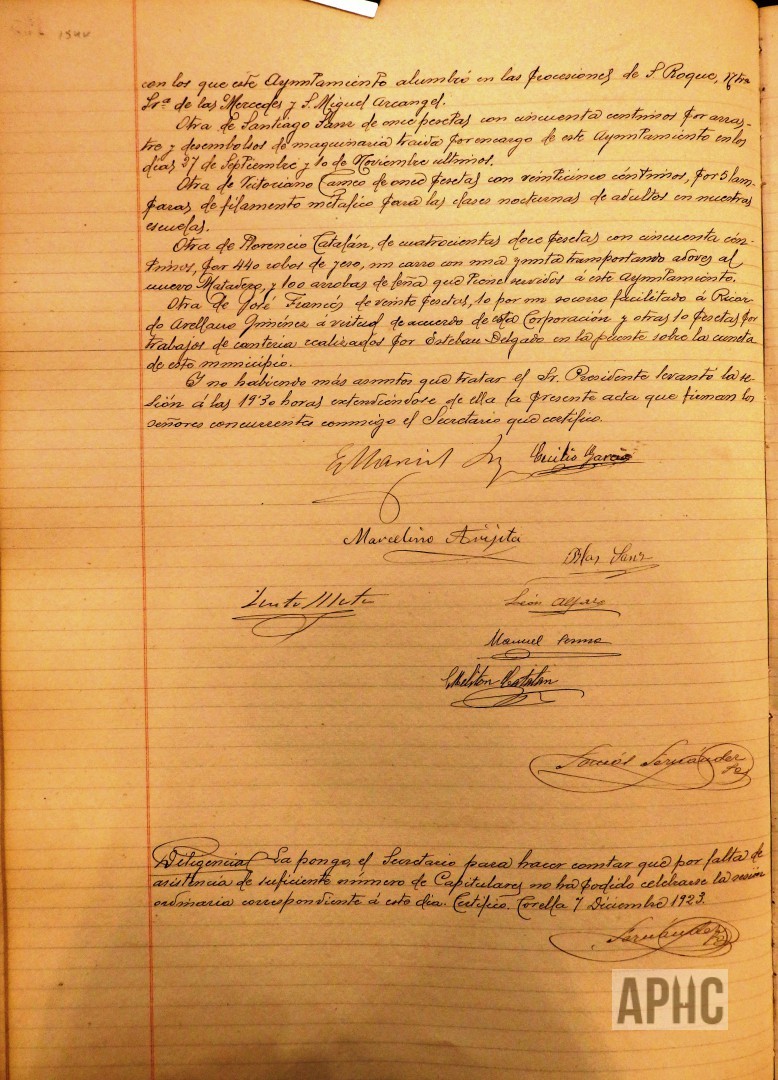 con los que este Ayuntamiento alumbró en las procesiones de S. Roque, Ntra.
Srª de las Mercedes y S. Miguel Arcangel.
Otra de Santiago Sanz de once pesetas con cincuenta centimos por arras-
tre y desembolsos de maquinaria traida por encargo de este Ayuntamiento en los
dias 27 de Septiembre y 10 de Noviembre ultimos.
Otra de Victoriano de once pesetas con veinticinco céntimos, por 5 lam-
paras de filamento metalico para las clases nocturnas de adultos en nuestras
escuelas.
Otra de Florencio Catalán, de cuatrocientas doce pesetas con cincuenta cén-
timos, por 440 robos de yeso, un carro con una yunta transportando adoves al
nuevo Matadero, y 100 arrobas de leña que tiene servidos á este Ayuntamiento.
Otra de José Francés de veinte pesetas, 10 por un socorro facilitado á Ricar-
do Arellano Giménez á virtud de acuerdo de esta Corporación y otras 10 pesetas por
trabajos de canteria realizados por Esteban Delgado en la puente sobre la cuneta
de este municipio.
Y no habiendo más asuntos que tratar el Sr. Presidente levantó la se-
sión á las 19'30 horas extendiéndose de ella la presente acta que firman los
señores concurrentes conmigo el Secretario que certifico.
Cecilio Garcia
Marcelino Arijita
Blas Sanz
León Alfaro
Manuel
Meliton Catalán
Tomás Fernández
Diligencia La pongo, el Secretario para hacer constar que por falta de
asistencia de suficiente número de Capitulares no ha podido celebrarse la sesión
ordinaria correspondiente á este dia. Certifico. Corella 7 Diciembre 1923.
Fernández
APHC